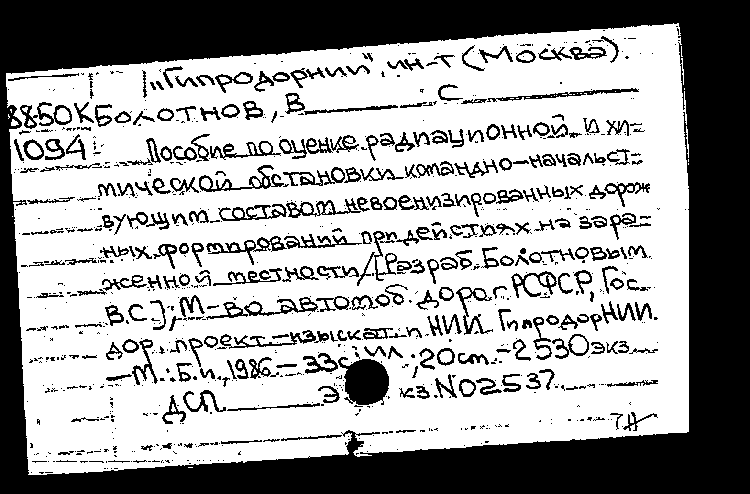 „Гипродорнии", ин-т (Москва).
88-50К Болотнов, В С
1094 Пособие по оценке радиационной и хи-
мической обстановки командно-начальст-
вующим составом невоенизированных дорож
ных формирований при действиях на зара-
женной местности/[Разраб. Болотновым
В.С.]; М-во автомоб. дорог РСФСР, Гос.
дор. проект.-изыскат. и НИИ ГипродорНИИ.
—М.: Б.и., 1986.— 33с: ил.; 20см.—2530экз.
ДСП Экз.N02537